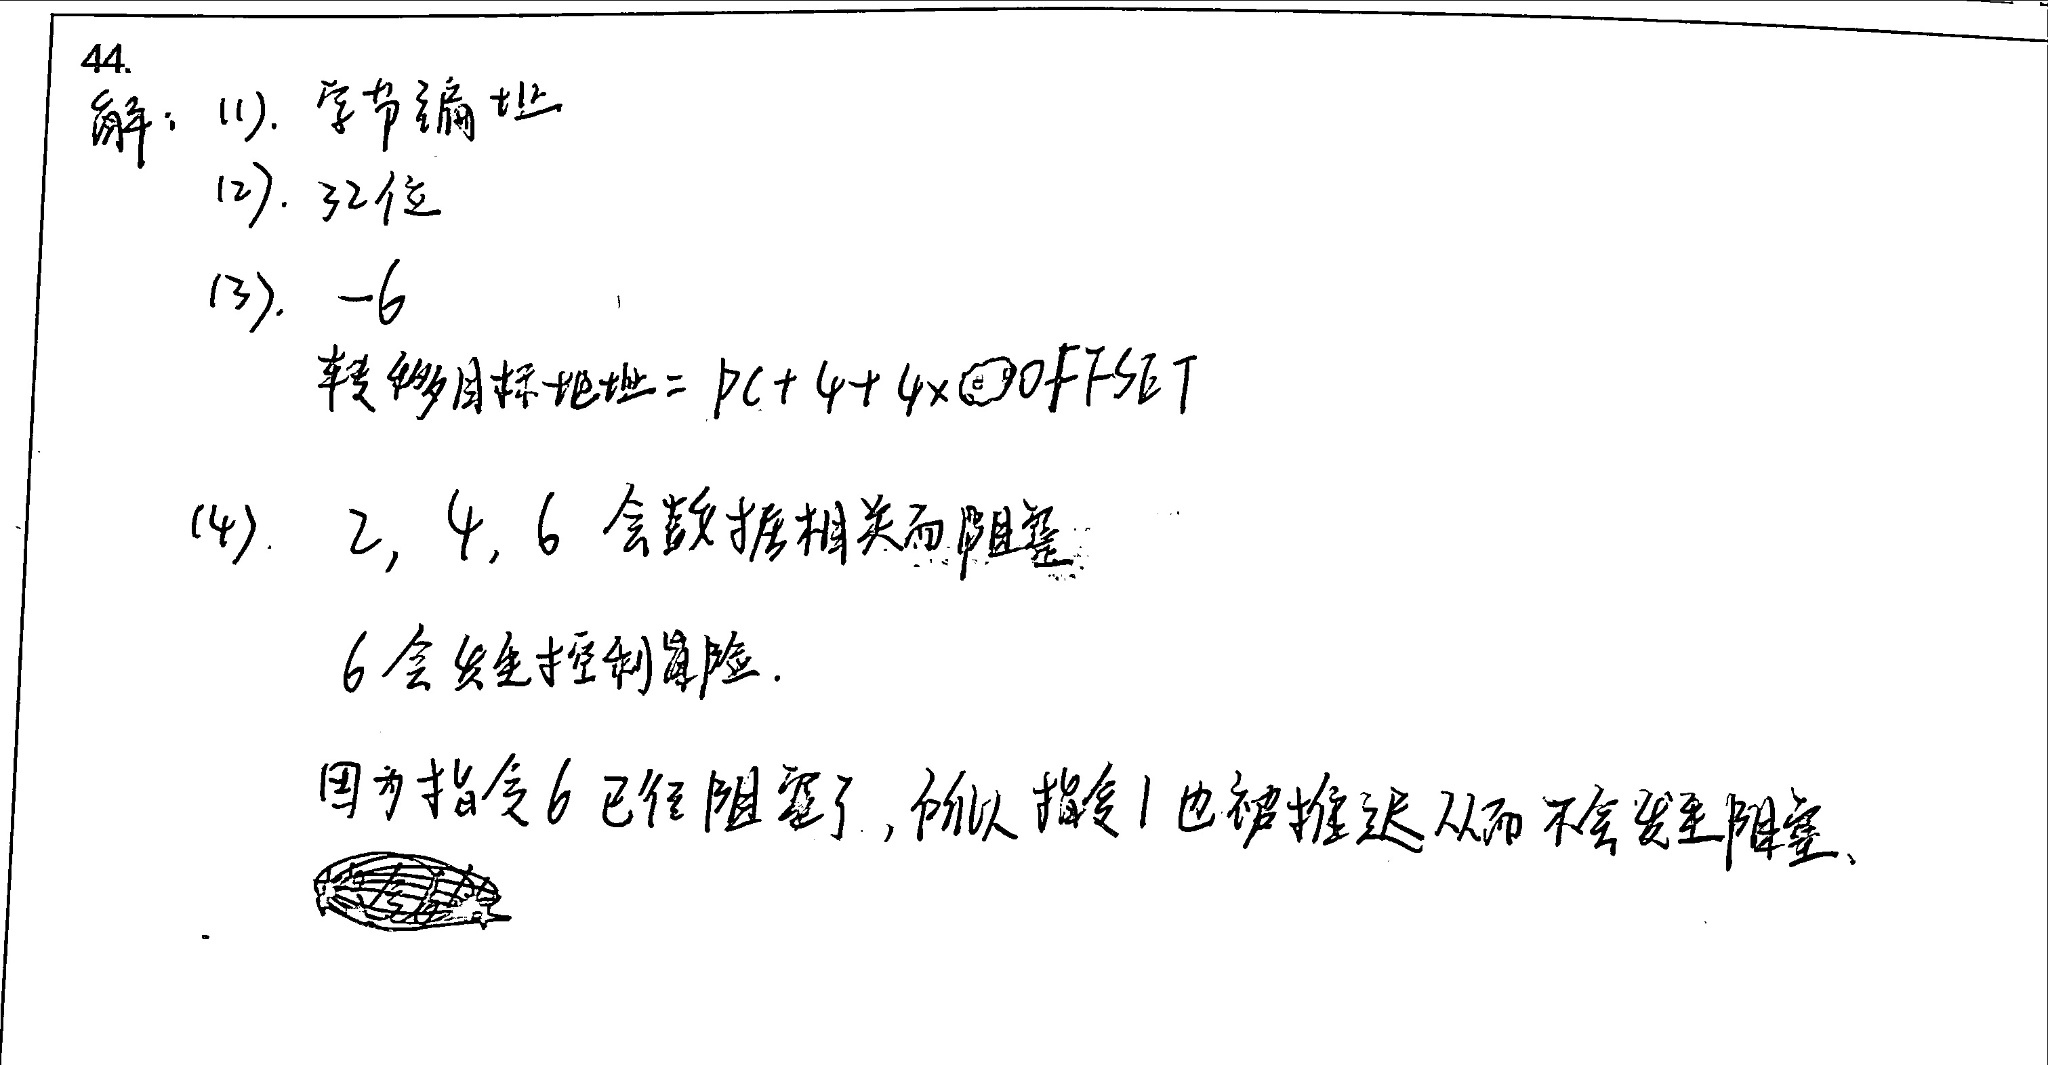 44.
解: (1). 字节编址
(2). 32位
(3). -6
转移目标地址 = PC + 4 + 4 × OFFSET
(4). 2, 4, 6 会数据相关而阻塞
6 会发生控制冒险.
因为指令6已经阻塞了,所以指令1也被推迟从而不会发生阻塞.